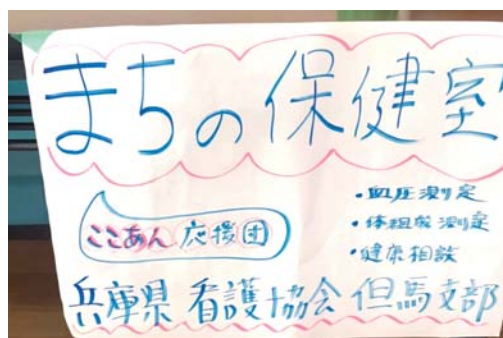 まちの保健室
ここあん 応援団
・血圧測定
・体組成測定
・健康相談
兵庫県 看護協会 但馬支部